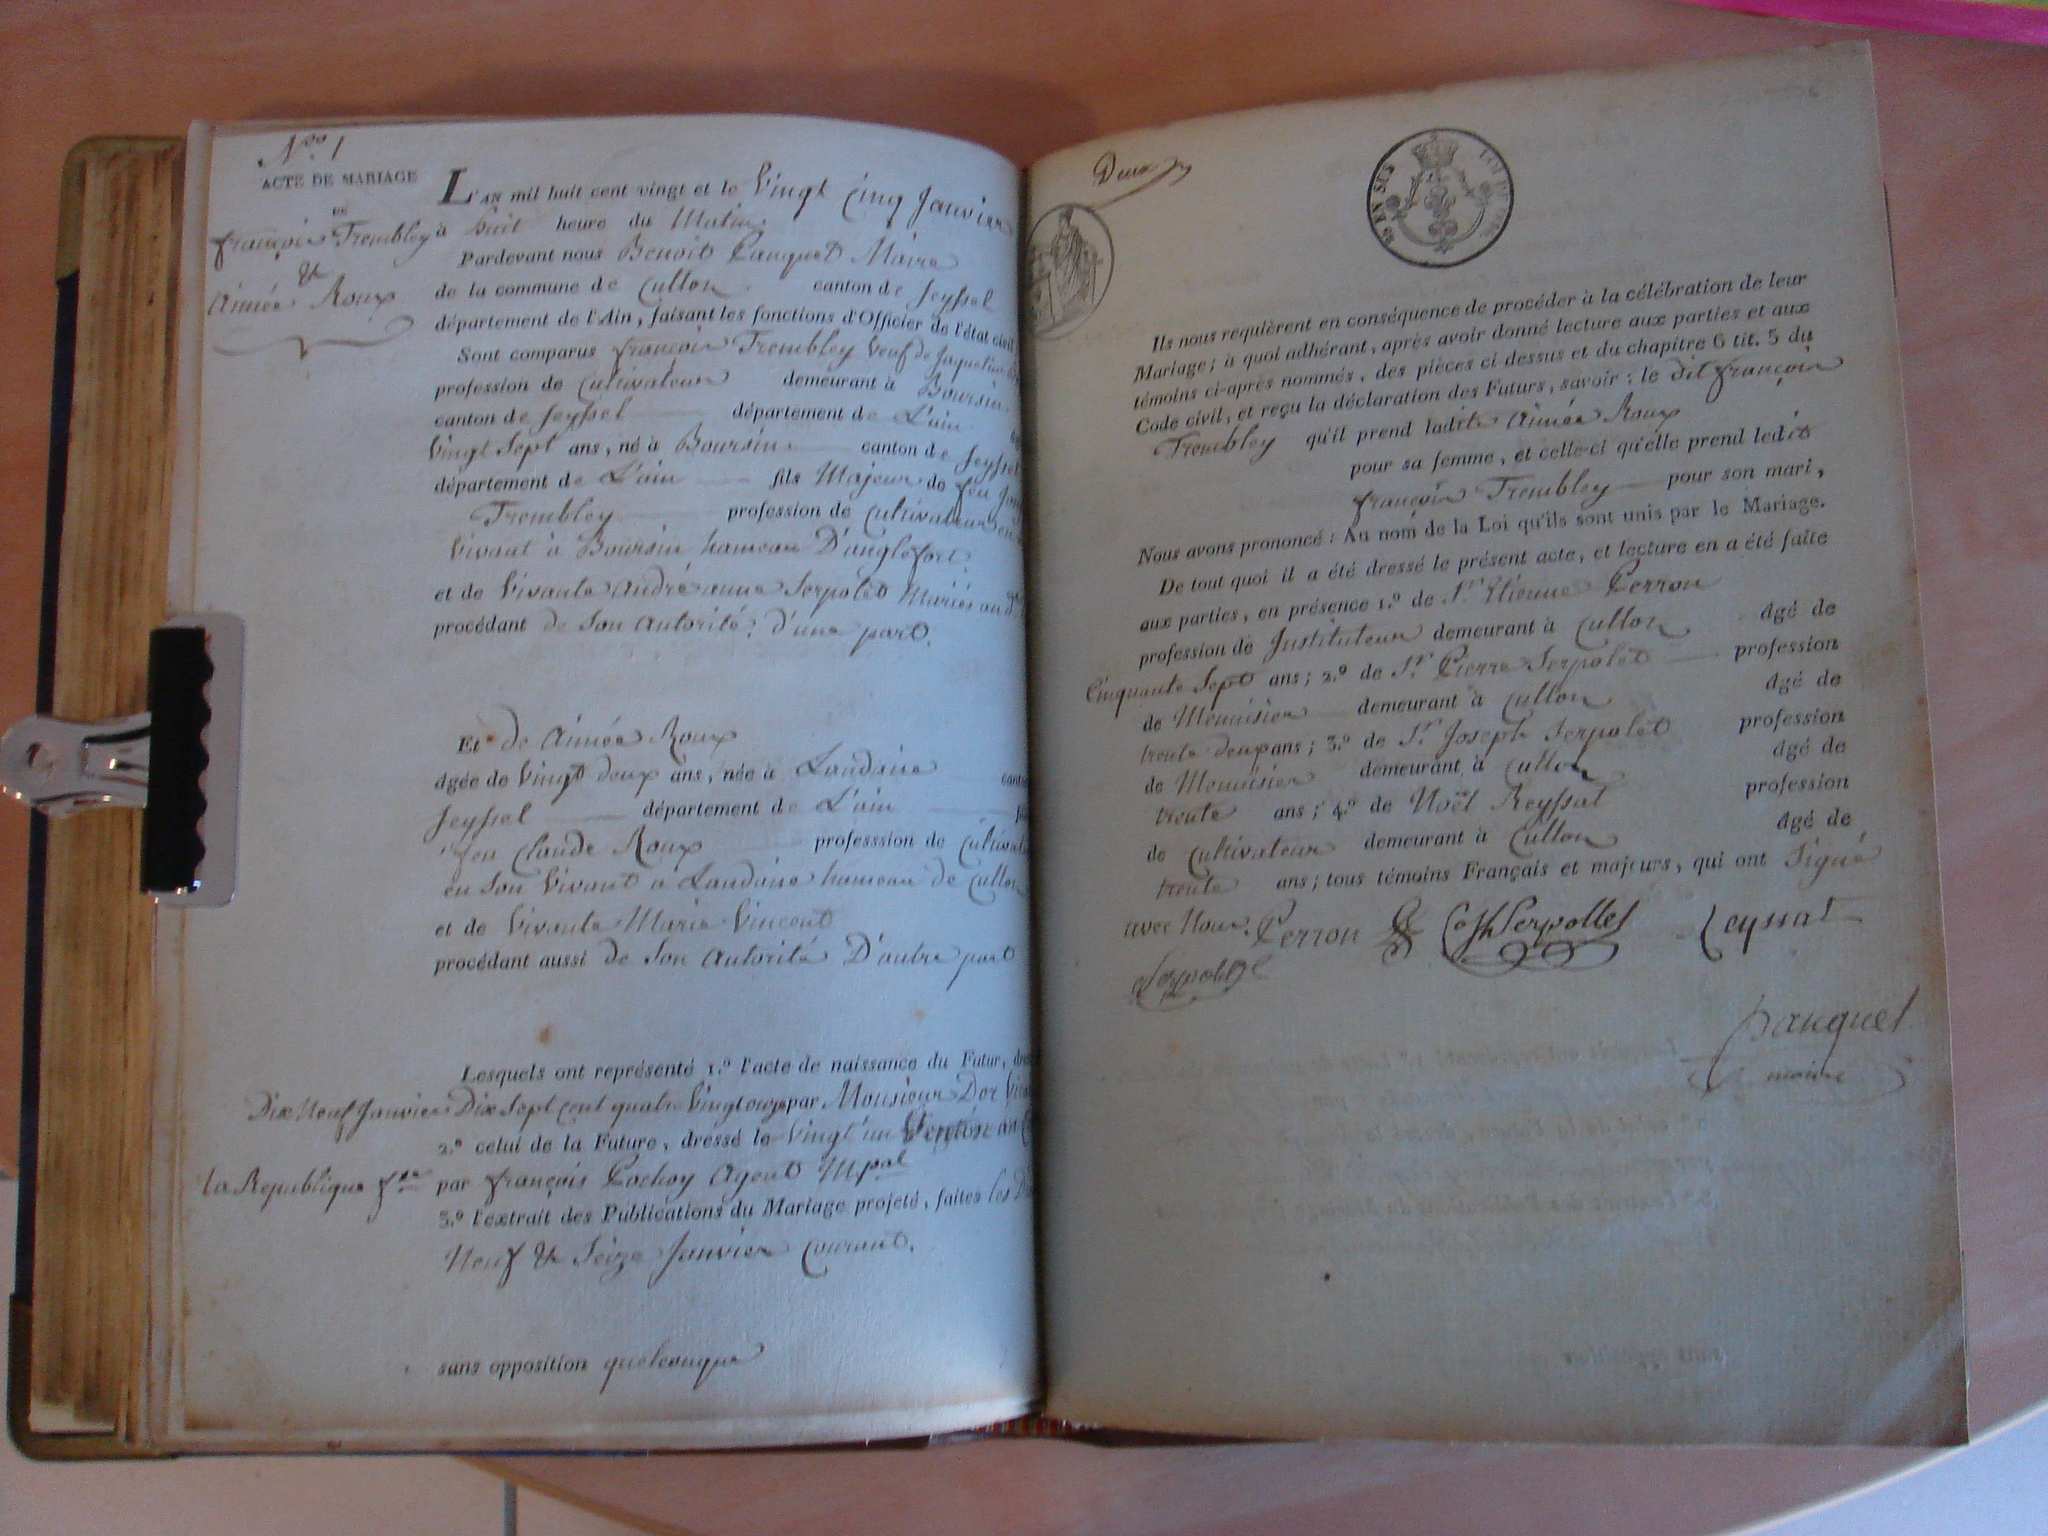 N.° 1
ACTE DE MARIAGE
DE
françois Trembley
&
Aimée Roux
L'AN mil huit cent vingt et le Vingt Cinq Janvier
à huit heure du Matin.
Pardevant nous Benoit Pauquet Maire
de la commune de Cullon. canton de Seyssel
département de l'Ain, faisant les fonctions d'Officier de l'état civil,
Sont comparus françois Trembley Veuf de Jaqueline
profession de Cultivateur demeurant à Boursin
canton de Seyssel département de L'ain
Vingt Sept ans, né à Boursin canton de Seyssel
département de L'ain fils Majeur de feu
Trembley profession de Cultivateur en
Vivant à Boursin hameau D'anglefort
et de Vivante Andréanne Serpolet Mariés
procédant de Son Autorité d'une part.
Et de Aimée Roux
âgée de Vingt deux ans, née à Landaise canton
Seyssel département de L'ain
feu Claude Roux professsion de Cultivat
en Son Vivant à Landaise hameau de Cullon
et de Vivante Marie Vincent
procédant aussi de Son Autorité D'autre part
Lesquels ont représenté 1.° l'acte de naissance du Futur,
Dix Neuf Janvier Dix Sept Cent quatre Vingt onze par Monsieur
2.° celui de la Future, dressé le Vingt un Ventôse an
la Republique f.se par françois Cochoy Agent M.pal
3.° l'extrait des Publications du Mariage projeté, faites les
Neuf & Seize Janvier Courant.
sans opposition quelconque
Deux
Ils nous requièrent en conséquence de procéder à la célébration de leur
Mariage; à quoi adhérant, après avoir donné lecture aux parties et aux
témoins ci-après nommés, des pièces ci dessus et du chapitre 6 tit. 5 du
Code civil, et reçu la déclaration des Futurs, savoir: le dit françois
Trembley qu'il prend ladite Aimée Roux
pour sa femme, et celle-ci qu'elle prend ledit
françois Trembley pour son mari,
Nous avons prononcé: Au nom de la Loi qu'ils sont unis par le Mariage.
De tout quoi il a été dressé le présent acte, et lecture en a été faite
aux parties, en présence 1.° de S.r Etienne Perron
profession de Instituteur demeurant à Cullon âgé de
Cinquante Sept ans; 2.° de S.r Pierre Serpolet profession
de Menuisier demeurant à Cullon âgé de
trente deux ans; 3.° de S.r Joseph Serpolet profession
de Menuisier demeurant à Cullon âgé de
trente ans; 4.° de Noël Reyssat profession
de Cultivateur demeurant à Cullon âgé de
trente ans; tous témoins Français et majeurs, qui ont Signé
avec Nous. Perron Serpollet Reyssat
Serpollet
pauquet
maire